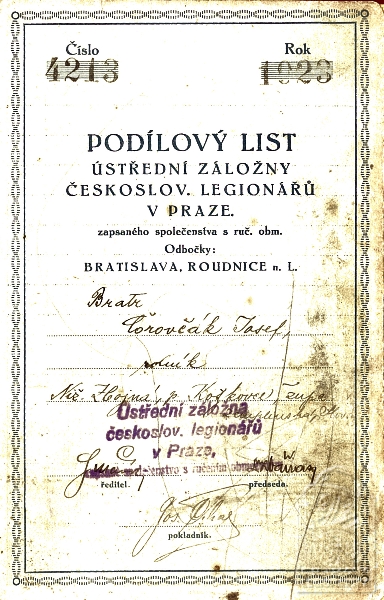 Číslo Rok
4213 1923
PODÍLOVÝ LIST
ÚSTŘEDNÍ ZÁLOŽNY
ČESKOSLOV. LEGIONÁŘŮ
V PRAZE.
zapsaného společenstva s ruč. obm.
Odbočky:
BRATISLAVA, ROUDNICE n. L.
Bratr
Čorovčák Josef,
rolník
Niž.
Ústřední záložna
českoslov. legionářů
v Praze,
společenstvo s ručením obm.
ředitel. předseda.
pokladník.